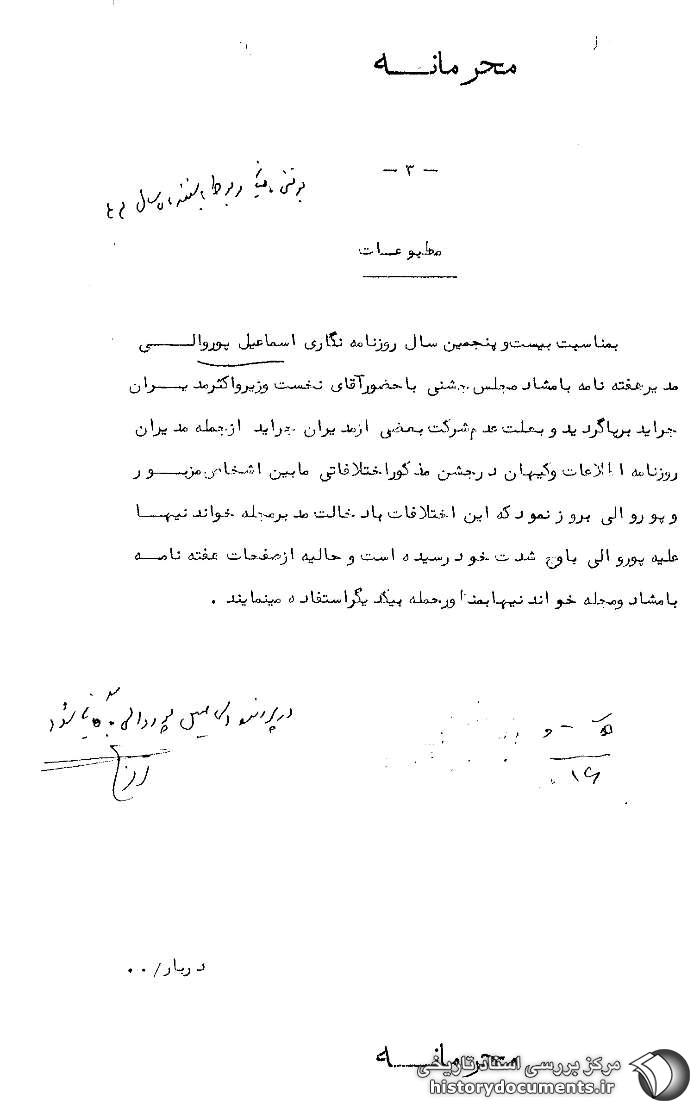 محرمانه
- ۳ -
مطبوعات
بمناسبت بیست و پنجمین سال روزنامه نگاری اسماعیل پوروالی
مدیر هفته نامه بامشاد مجلس جشنی با حضور آقای نخست وزیر و اکثر مدیران
جراید برپا گردید و بعلت عدم شرکت بعضی از مدیران جراید از جمله مدیران
روزنامه اطلاعات و کیهان در جشن مذکور اختلافاتی مابین اشخاص مزبور
و پوروالی بروز نمود که این اختلافات با دخالت مدیر مجله خواندنیها
علیه پوروالی باوج شدت خود رسیده است و حالیه از صفحات هفته نامه
بامشاد و مجله خواندنیها بمنظور حمله بیکدیگر استفاده مینمایند .
در پرونده اسماعیل پوروالی
۱۶
دربار/۰۰
محرمانه
مرکز بررسی اسناد تاریخی
historydocuments.ir